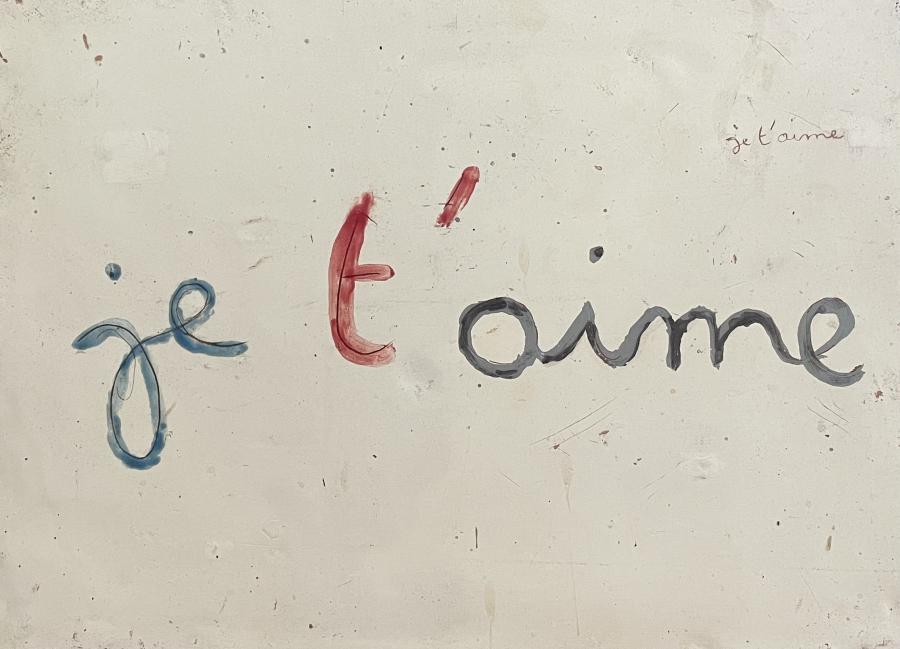 je t'aime
je t'aime